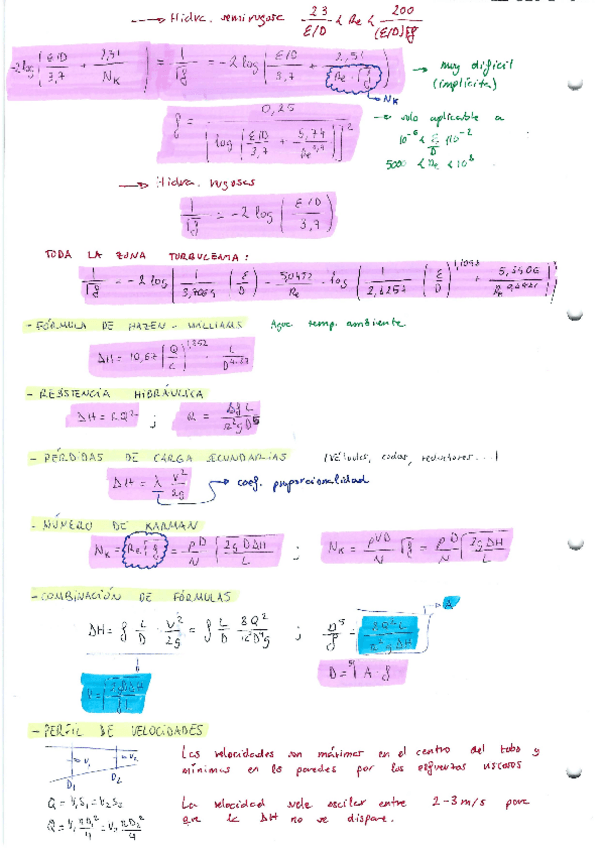 → Hidra. semirugosa 23/(E/D) < Re < 200/((E/D)√f)
-2log(E/D/3,7 + 2,51/N_K) = 1/√f = -2 log(E/D/3,7 + 2,51/(Re·√f)) → muy difícil (implícita)
→ N_K
f = 0,25/[log(E/D/3,7 + 5,74/Re^0,9)]² → solo aplicable a
10⁻⁶ < E/D < 10⁻²
5000 < Re < 10⁸
→ Hidra. rugosas
1/√f = -2 log(E/D/3,7)
TODA LA ZONA TURBULENTA:
1/√f = -2 log[1/3,7065 (E/D) - 5,0452/Re · log(1/2,8257 (E/D)^1,1098 + 5,8506/Re^0,8981)]
- FÓRMULA DE HAZEN - WILLIAMS Agua temp. ambiente
ΔH = 10,67 (Q/C)^1,852 · L/D^4,87
- RESISTENCIA HIDRÁULICA
ΔH = RQ² ; R = 8fL/π²gD⁵
- PÉRDIDAS DE CARGA SECUNDARIAS (Válvulas, codos, reductores...)
ΔH = λ V²/2g → coef. proporcionalidad
- NÚMERO DE KARMAN
N_K = Re√f = ρD/N √(2gDΔH/L) ; N_K = ρVD/N √f = ρD/N √(2gΔH/L)
- COMBINACIÓN DE FÓRMULAS
ΔH = f L/D · V²/2g = f L/D 8Q²/π²D⁴g ; D⁵/f = 8Q²L/π²gΔH → A
D = ⁵√(A·f)
- PERFIL DE VELOCIDADES
V₁ V₂
D₁ D₂
Las velocidades son máximas en el centro del tubo y
mínimas en la paredes por los esfuerzos viscosos
Q = V₁S₁ = V₂S₂
Q = V₁ πD₁²/4 = V₂ πD₂²/4
La velocidad suele oscilar entre 2-3 m/s para
que la ΔH no se dispare.